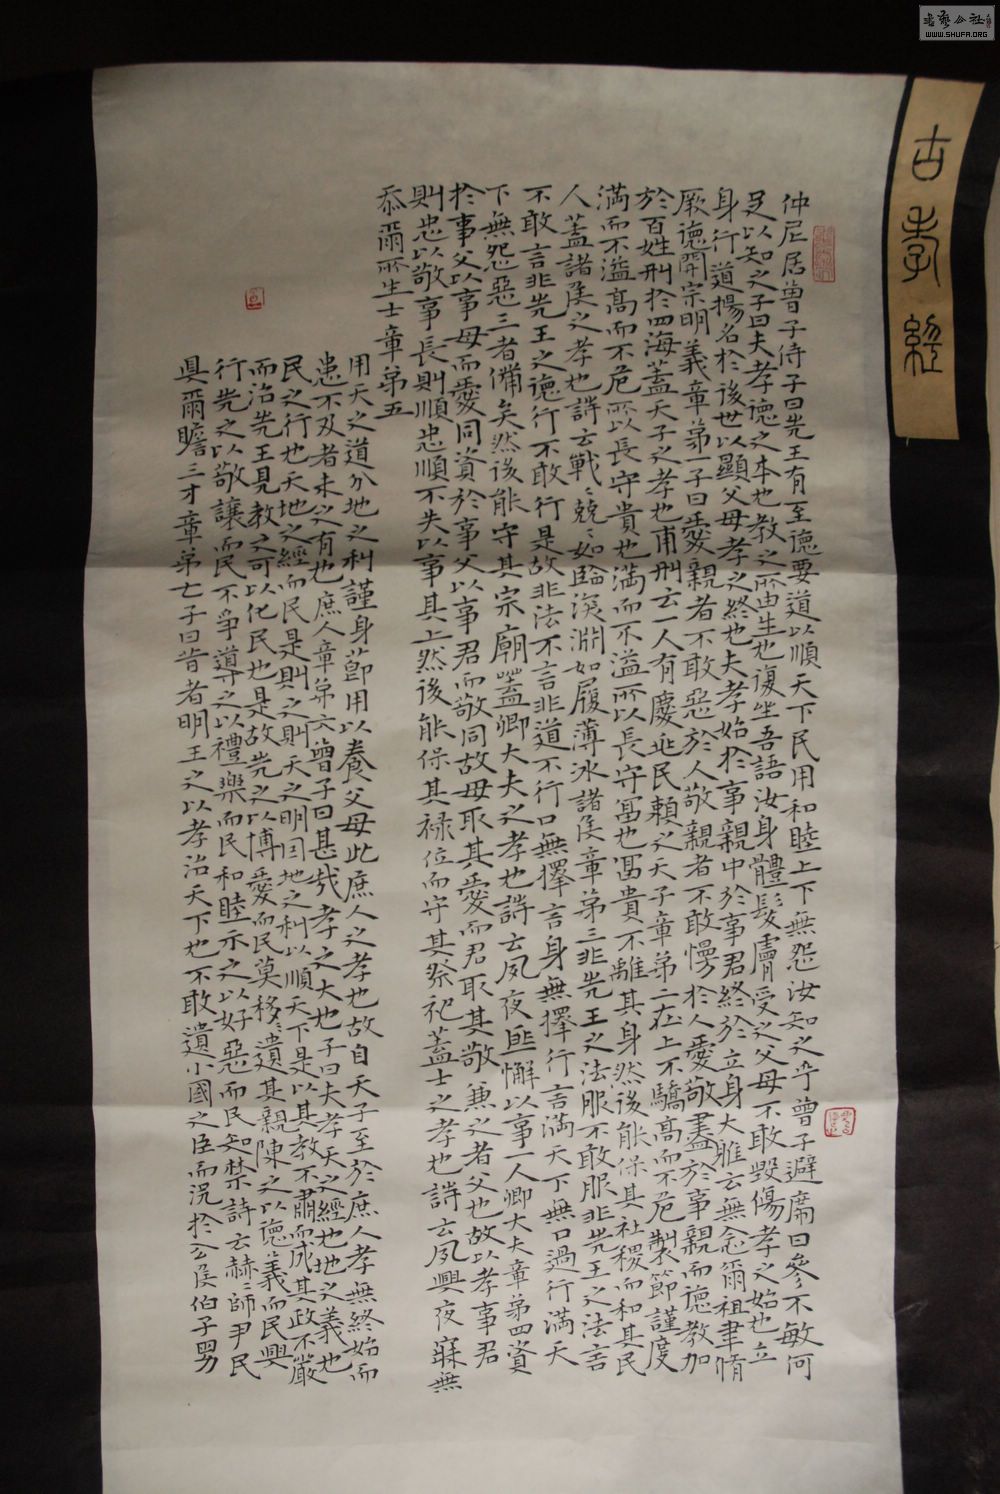 書藝公社
WWW.SHUFA.ORG
古孝經
仲尼居曾子侍子曰先王有至德要道以順天下民用和睦上下無怨汝知之乎曾子避席曰參不敏何
足以知之子曰夫孝德之本也教之所由生也復坐吾語汝身體髮膚受之父母不敢毀傷孝之始也立
身行道揚名於後世以顯父母孝之終也夫孝始於事親中於事君終於立身大雅云無念爾祖聿脩
厥德開宗明義章弟一子曰愛親者不敢惡於人敬親者不敢慢於人愛敬盡於事親而德教加
於百姓刑於四海蓋天子之孝也甫刑云一人有慶兆民賴之天子章弟二在上不驕高而不危製節謹度
滿而不溢高而不危所以長守貴也滿而不溢所以長守富也富貴不離其身然後能保其社稷而和其民
人蓋諸侯之孝也詩云戰〻兢〻如臨深淵如履薄冰諸侯章弟三非先王之法服不敢服非先王之法言
不敢言非先王之德行不敢行是故非法不言非道不行口無擇言身無擇行言滿天下無口過行滿天
下無怨惡三者備矣然後能守其宗廟蓋卿大夫之孝也詩云夙夜匪懈以事一人卿大夫章弟四資
於事父以事母而愛同資於事父以事君而敬同故母取其愛而君取其敬兼之者父也故以孝事君
則忠以敬事長則順忠順不失以事其上然後能保其祿位而守其祭祀蓋士之孝也詩云夙興夜寐無
忝爾所生士章弟五
用天之道分地之利謹身節用以養父母此庶人之孝也故自天子至於庶人孝無終始而
患不及者未之有也庶人章弟六曾子曰甚哉孝之大也子曰夫孝天之經也地之義也
民之行也天地之經而民是則之則天之明因地之利以順天下是以其教不肅而成其政不嚴
而治先王見教之可以化民也是故先之以博愛而民莫移〻遺其親陳之以德義而民興
行先之以敬讓而民不爭導之以禮樂而民和睦示之以好惡而民知禁詩云赫〻師尹民
具爾瞻三才章弟七子曰昔者明王之以孝治天下也不敢遺小國之臣而況於公侯伯子男